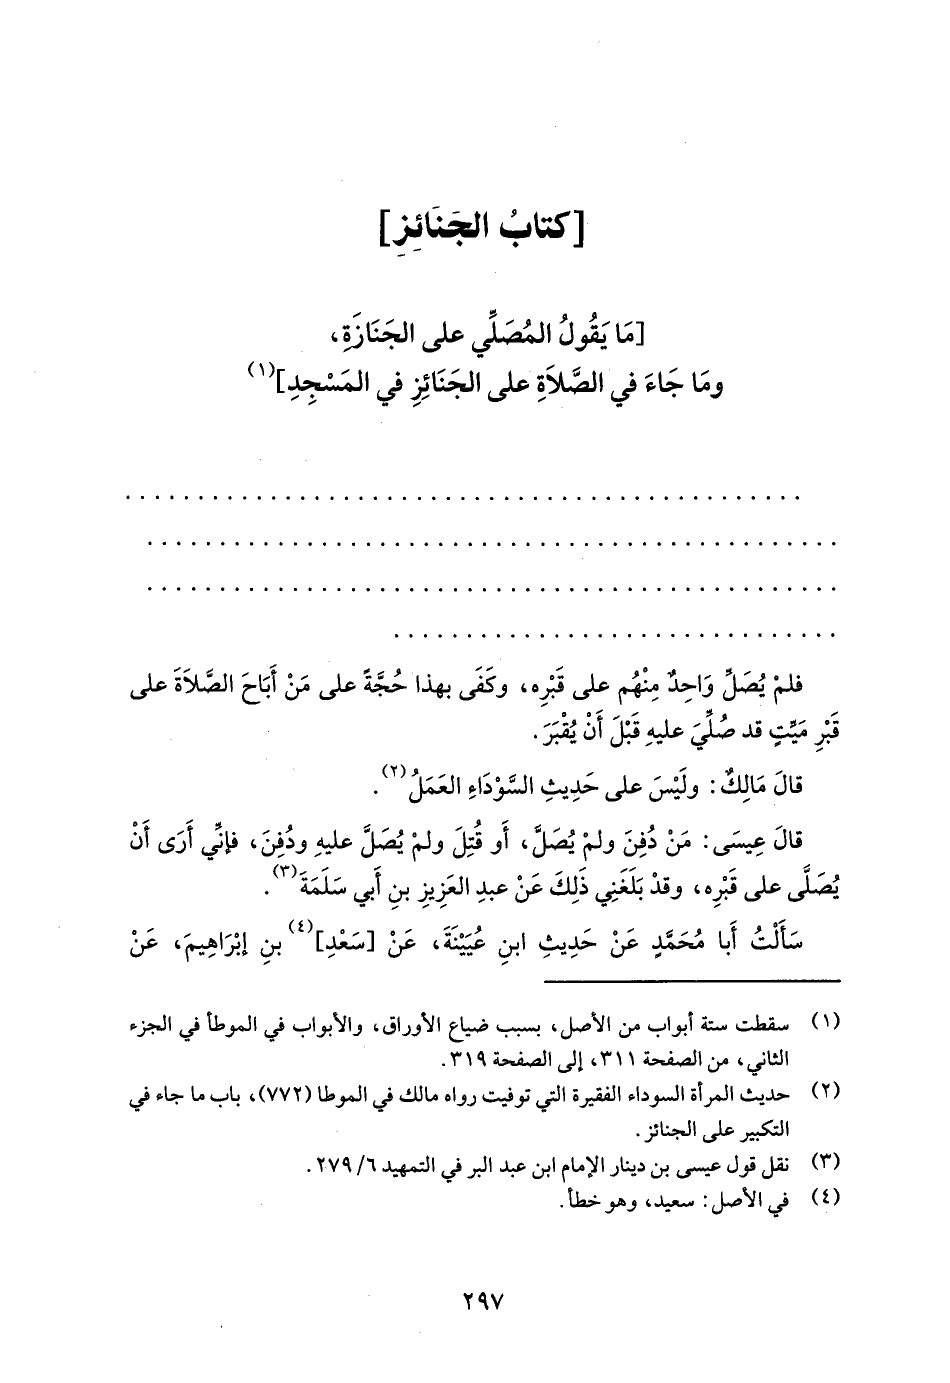 [كتابُ الجَنَائِزِ]
[مَا يَقُولُ المُصَلِّي على الجَنَازَةِ،
ومَا جَاءَ في الصَّلاَةِ على الجَنَائِزِ في المَسْجِدِ](١)
. . . . . . . . . . . . . . . . . . . . . . . . . . . . . . . . . . . . . . . . . . . . . . .
. . . . . . . . . . . . . . . . . . . . . . . . . . . . . . . . . . . . . . . . . . . . . . . .
. . . . . . . . . . . . . . . . . . . . . . . . . . . . . . . . . . . . . . . . . . . . . . . .
. . . . . . . . . . . . . . . . . . . . . . . . . . . . . . .
فلمْ يُصَلِّ وَاحِدٌ مِنْهُم على قَبْرِه، وكَفَى بهذا حُجَّةً على مَنْ أَبَاحَ الصَّلاَةَ على
قَبْرِ مَيِّتٍ قد صُلِّيَ عليهِ قَبْلَ أَنْ يُقْبَرَ.
قالَ مَالِكٌ: ولَيْسَ على حَدِيثِ السَّوْدَاءِ العَمَلُ(٢).
قالَ عِيسَى: مَنْ دُفِنَ ولمْ يُصَلَّ، أو قُتِلَ ولمْ يُصَلَّ عليهِ ودُفِنَ، فإنِّي أَرَى أَنْ
يُصَلَّى على قَبْرِه، وقدْ بَلَغَنِي ذَلِكَ عَنْ عبدِ العَزِيزِ بنِ أَبي سَلَمَةَ(٣).
سَأَلْتُ أَبا مُحَمَّدٍ عَنْ حَدِيثِ ابنِ عُيَيْنَةَ، عَنْ [سَعْدِ](٤) بنِ إبْرَاهِيمَ، عَنْ
(١) سقطت ستة أبواب من الأصل، بسبب ضياع الأوراق، والأبواب في الموطأ في الجزء
الثاني، من الصفحة ٣١١، إلى الصفحة ٣١٩.
(٢) حديث المرأة السوداء الفقيرة التي توفيت رواه مالك في الموطا (٧٧٢)، باب ما جاء في
التكبير على الجنائز.
(٣) نقل قول عيسى بن دينار الإمام ابن عبد البر في التمهيد ٦/ ٢٧٩.
(٤) في الأصل: سعيد، وهو خطأ.
٢٩٧